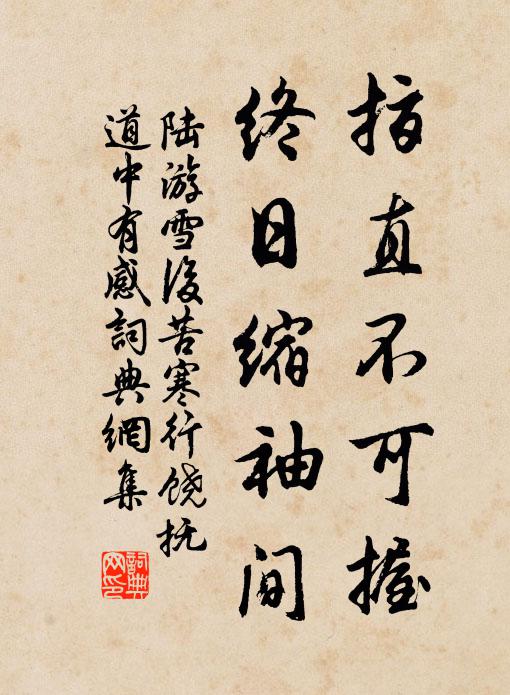 指直不可握
终日缩袖间
陆游雪後苦寒行饶抚
道中有感詞典網集
詞典
网印